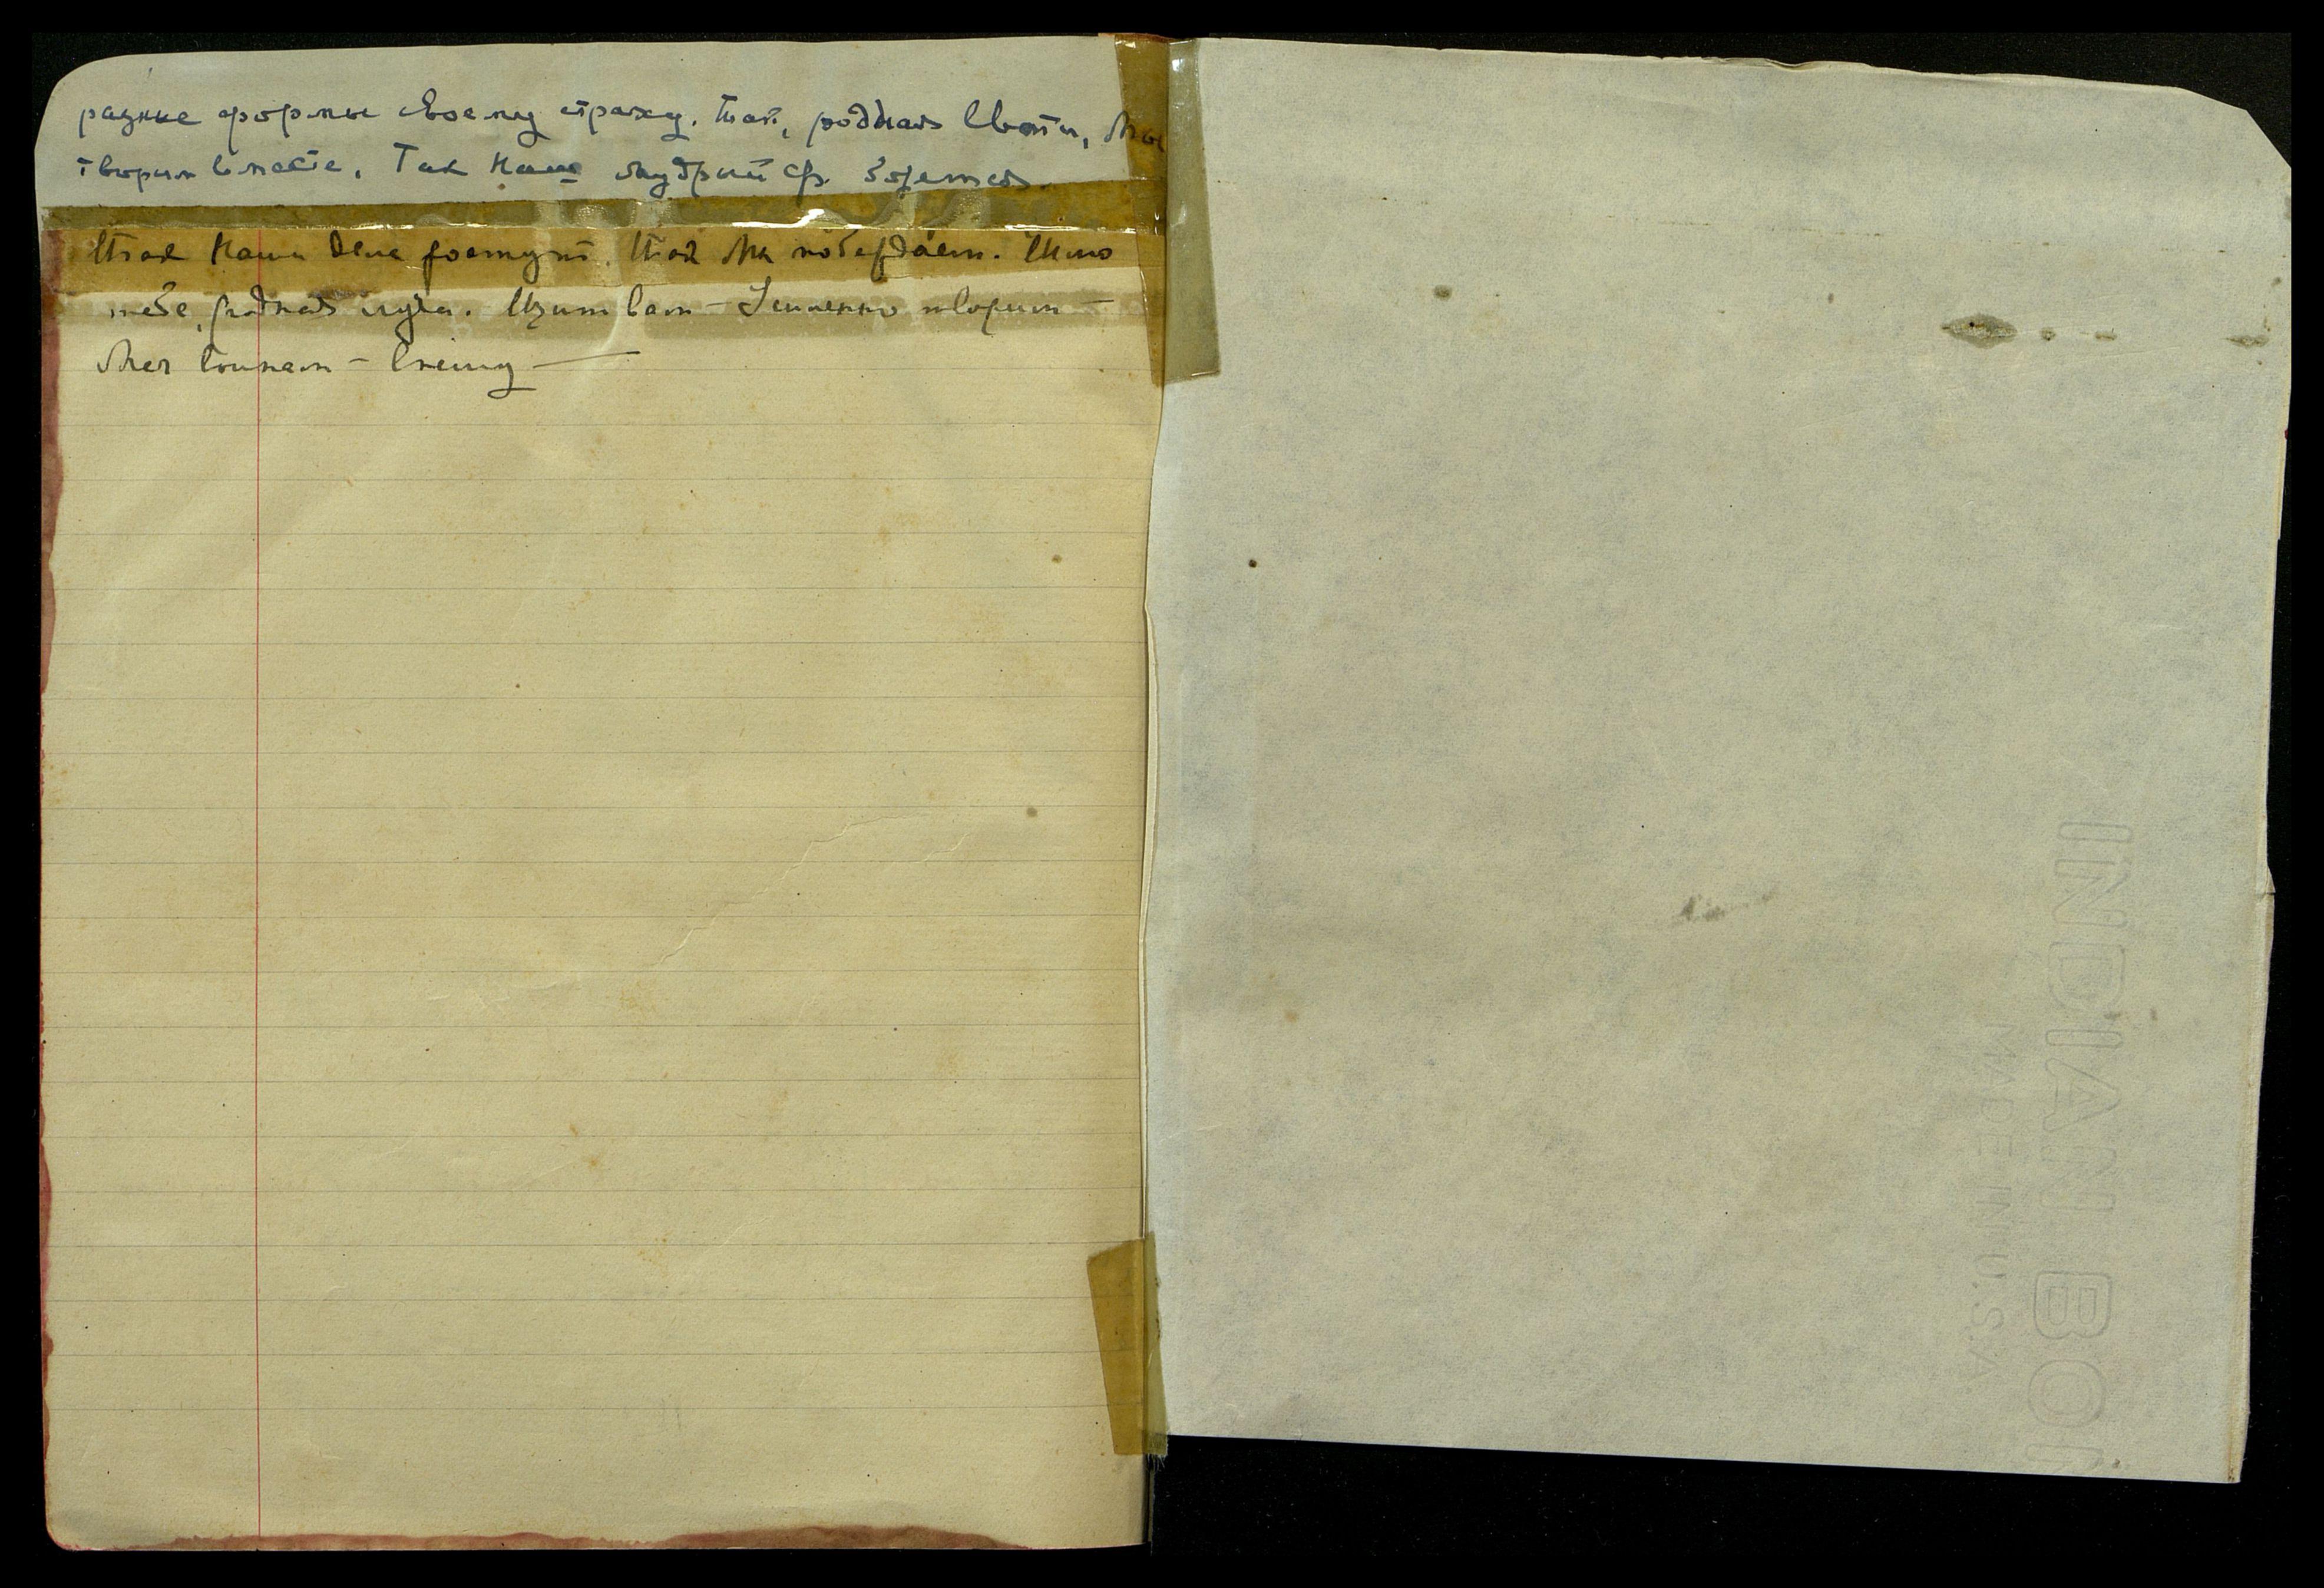 разные формы своему страху. Так, родная Свати, Мы
творим вместе. Так Наш мудрый ср. борется.
Так Наши дела растут. Так Мы побеждаем. Шлю
тебе, родная, лучи. Чутким Вам – Успешно творим –
Меч вонзаем – Спешу –
INDIAN BON
MADE IN U.S.A.